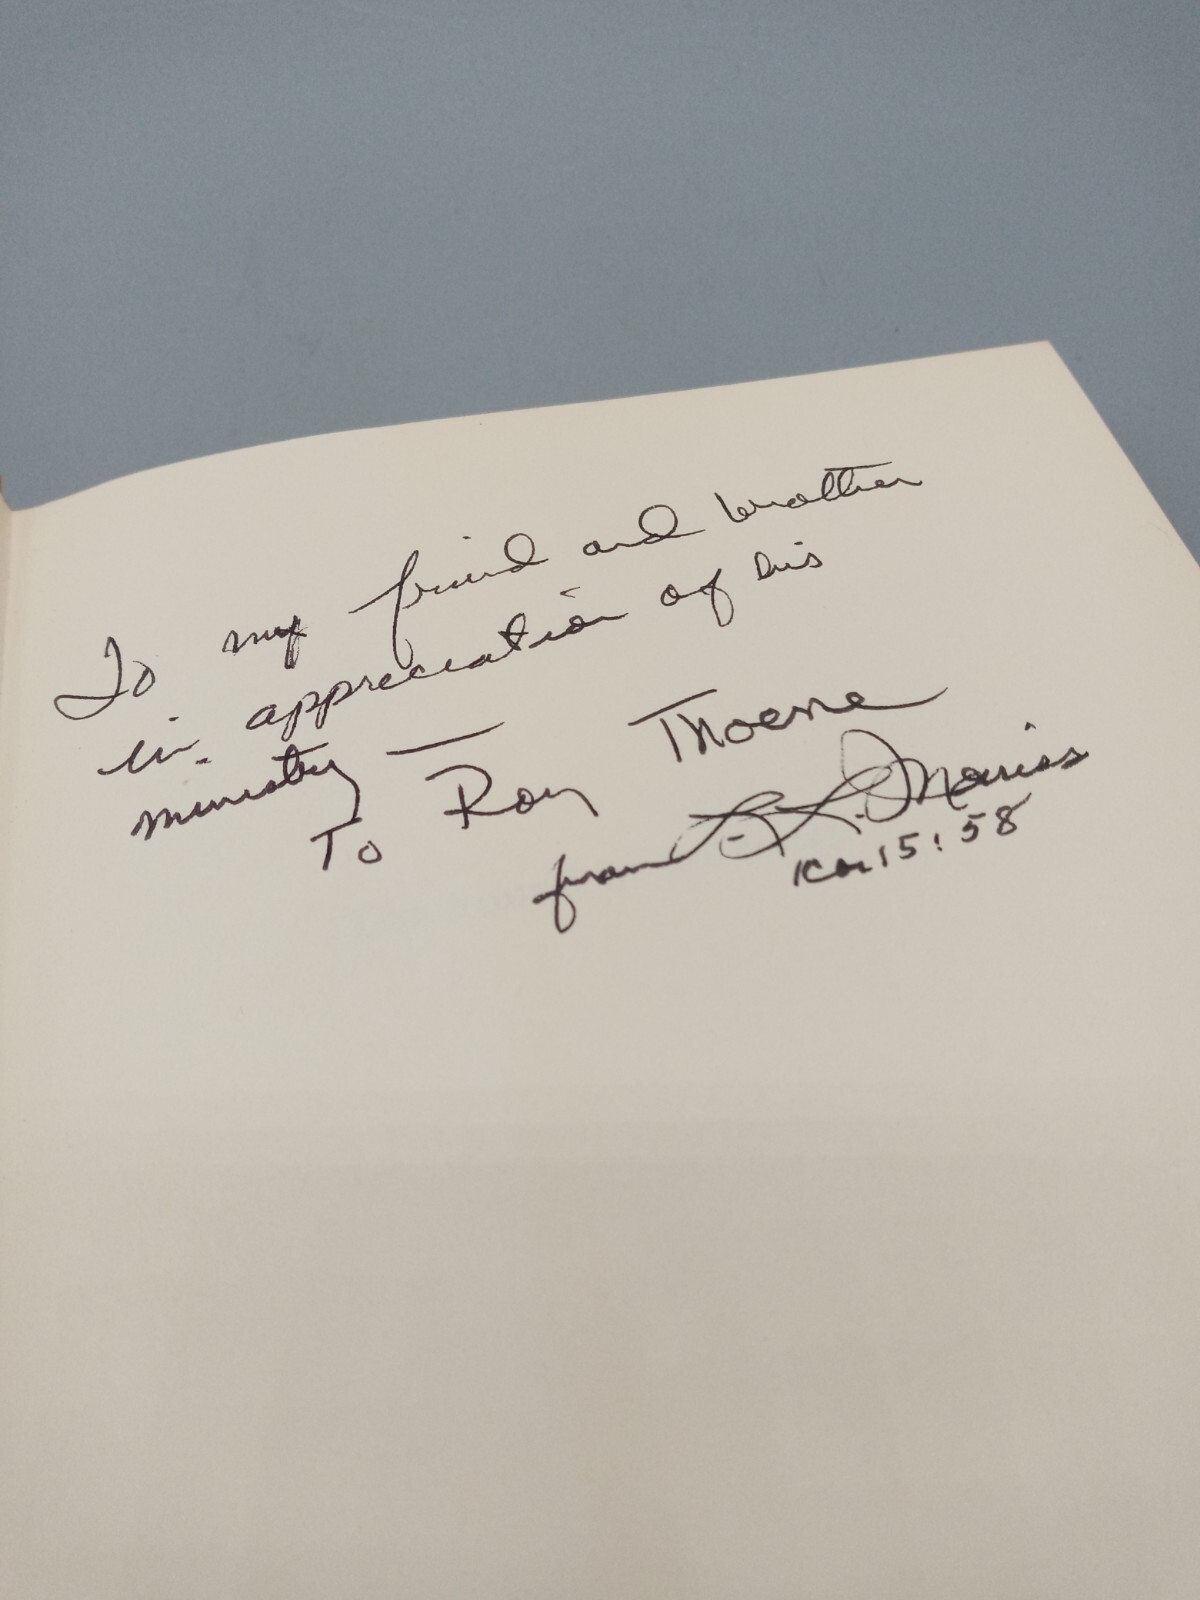 To my friend and brother
in appreciation of his
ministry —
To Roy Thoene
from L. L. Morris
1 Cor 15:58